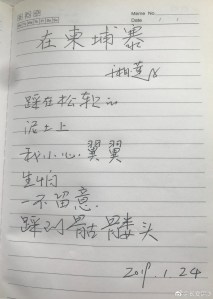 Memo No.
Date / /
在柬埔寨
湘莲
踩在松软的
泥土上
我小心翼翼
生怕
一不留意
踩到骷髅头
2019.1.24